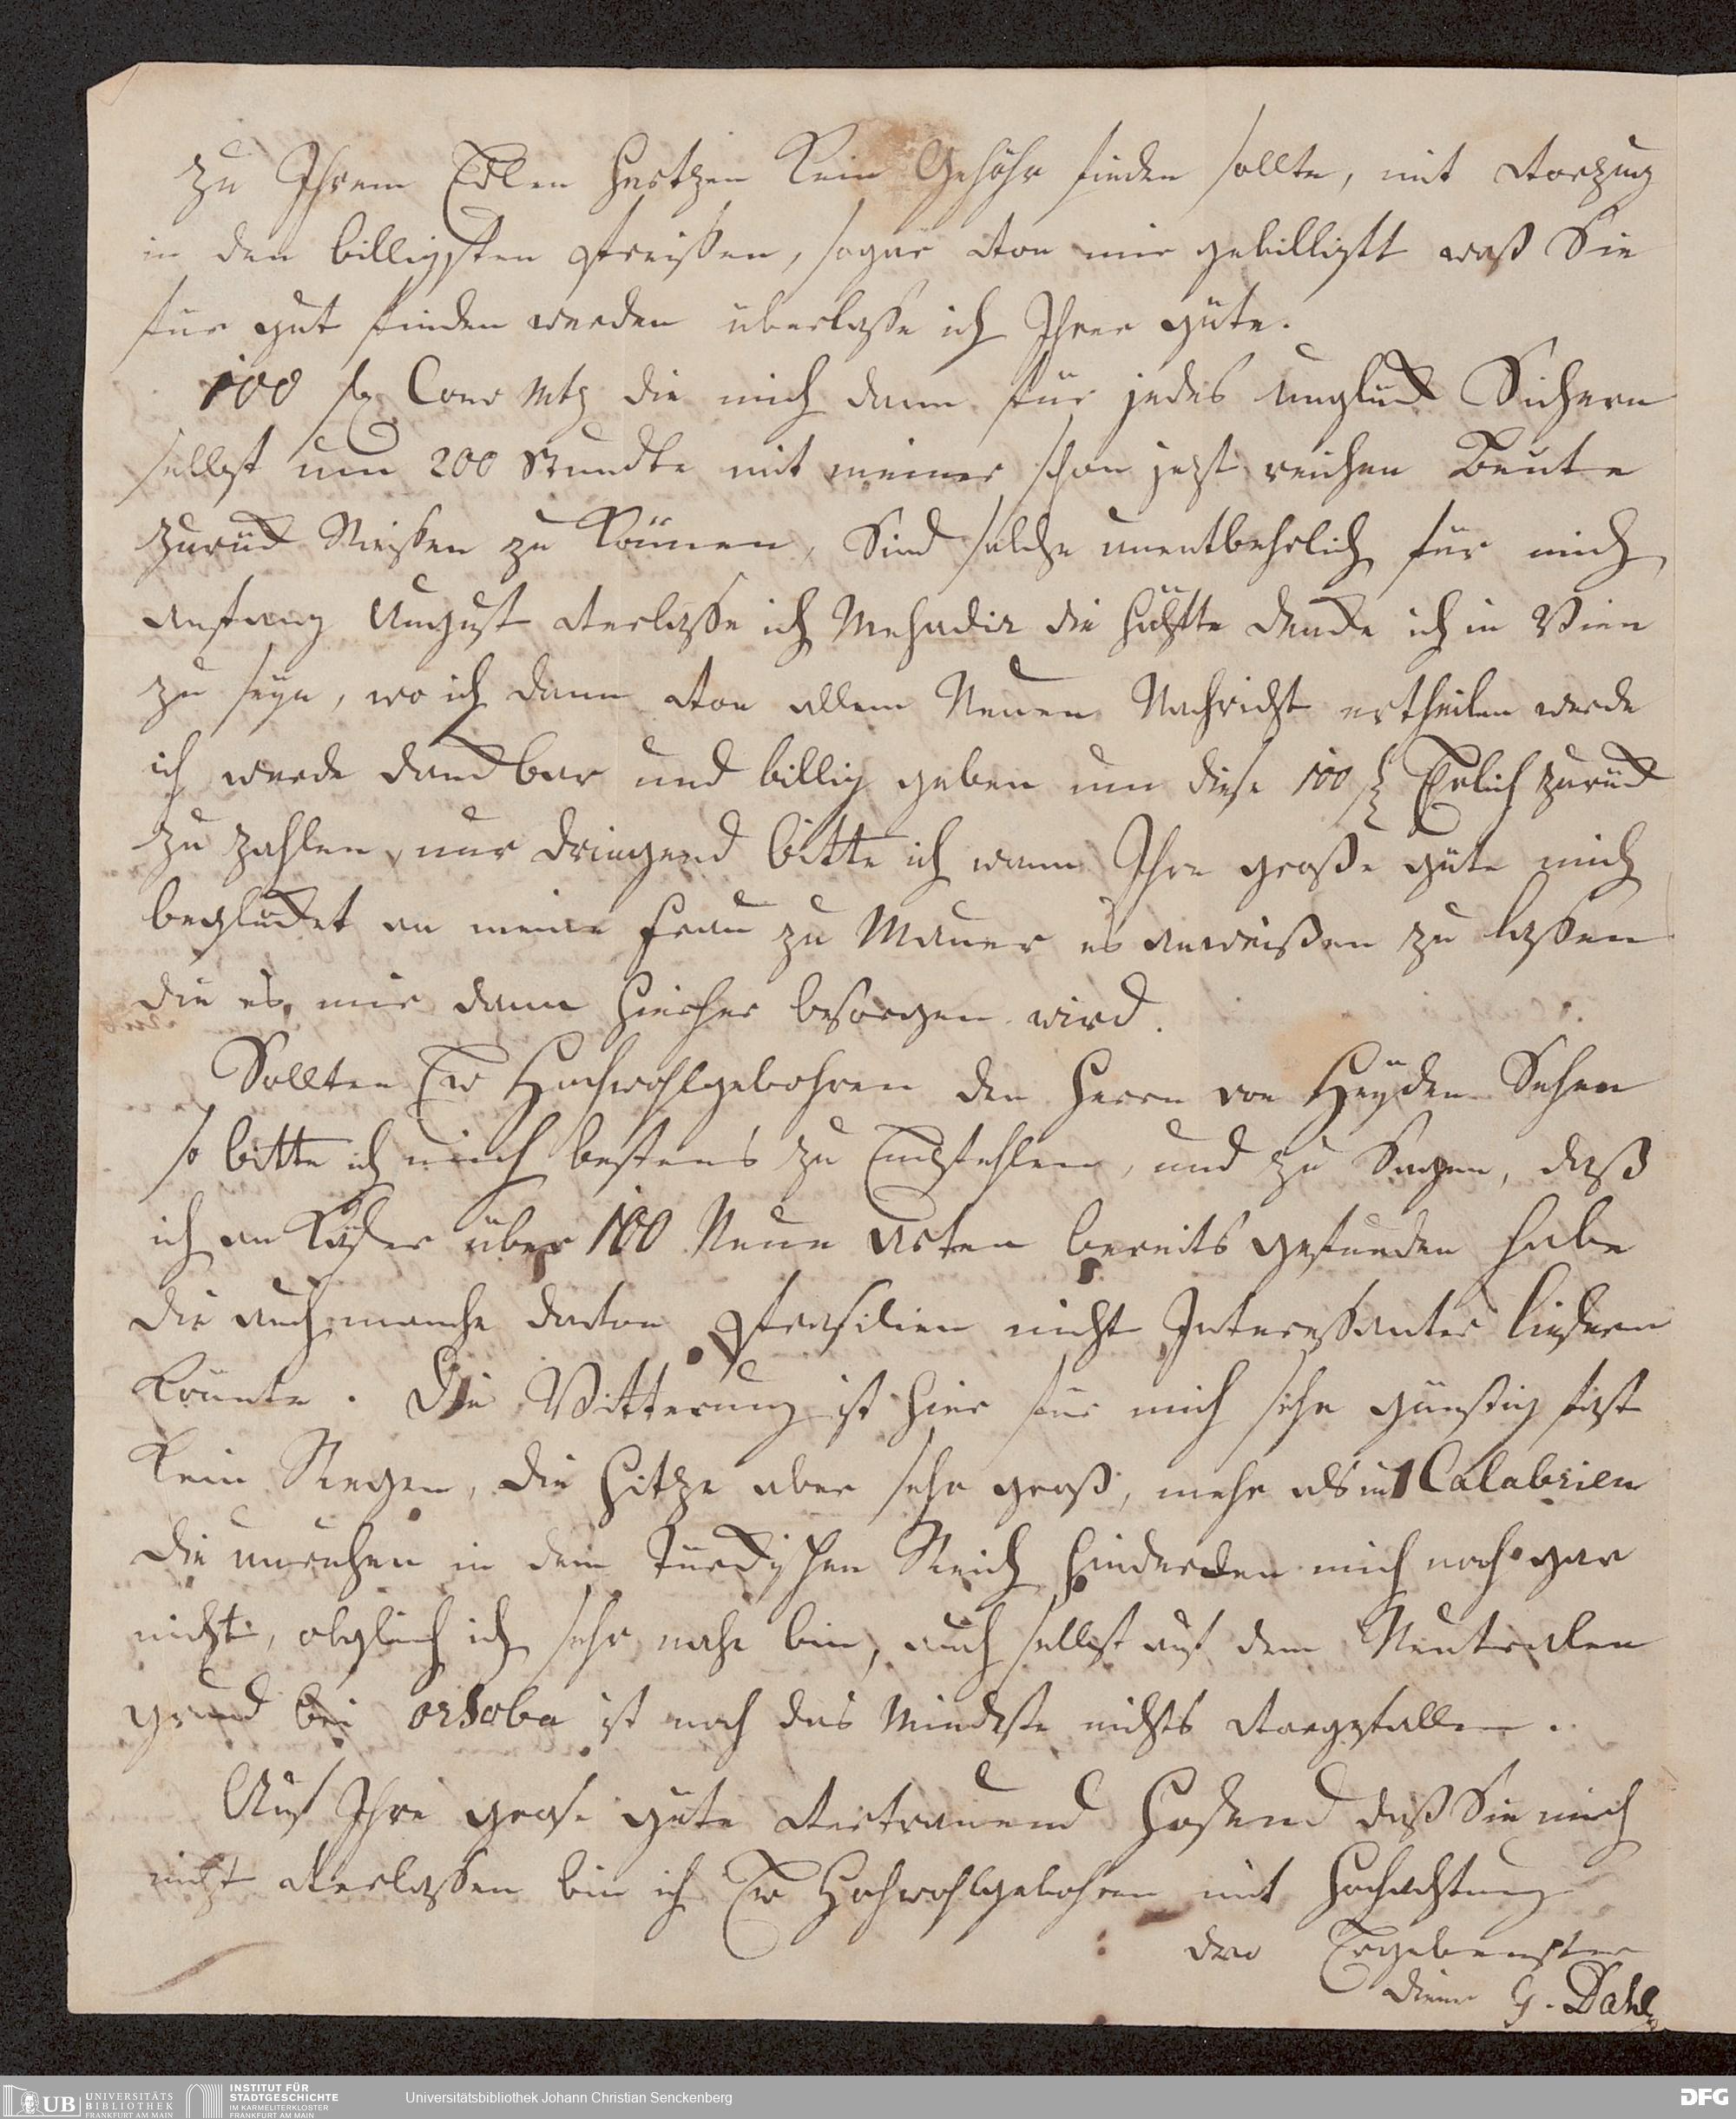 zu Ihrem Edlen Hertzen kein Gehöhr finden sollte, mit Vorzug
in den billigsten Preißen, sogar von mir gebilligtt waß Sie
für gut finden werden überlaße ich Ihrer güte.
100 f Conv Mtz die mich dann für jedes Unglück Sichern
selbst um 200 Stundte mit meiner schon jezt reichen Beute
zurück Reißen zu Können, Sind solche unentbehrlich für mich
anfang August verlaße ich Mehadia die Hälftte dencke ich in Wien
zu seyn, wo ich dann von allem Neuen Nachricht ertheilen werde
ich werde danckbar und billig geben um diese 100 f Erlich zurück
zu zahlen, nur dringend bitte ich wann Ihre große güte mich
beglücket an meine Frau zu Mauer es anweißen zu laßen
die es mir dann hierher besorgen wird.
Sollten Ew Hochwohlgebohren den Herrn von Heyden Sehen
so bitte ich mich bestens zu Empfehlen, und zu Sagen, daß
ich an Käfer über 100 Neue Arten bereits gefunden habe
die auch manche davon Prasilien nicht Interessanter liefern
könnte. Die Witterung ist hier für mich sehr günstig fast
kein Regen, die Hitze aber sehr groß, mehr als in Calabrien
die unruhen in dem Türckischen Reich hinderden mich noch gar
nicht, obgleich ich sehr nahe bin, auch selbst auf dem Neutralen
grund bei orsova ist noch das Mindeste nichts vorgefallen.
Auf Ihre grose güte vertrauend hofend daß Sie mich
nicht verlaßen bin ich Ew Hochwohlgebohren mit Hochachtung
dero Ergebenster
Diener G. Dahl
UB UNIVERSITÄTS
BIBLIOTHEK
FRANKFURT AM MAIN
INSTITUT FÜR
STADTGESCHICHTE
IM KARMELITERKLOSTER
FRANKFURT AM MAIN
Universitätsbibliothek Johann Christian Senckenberg
DFG